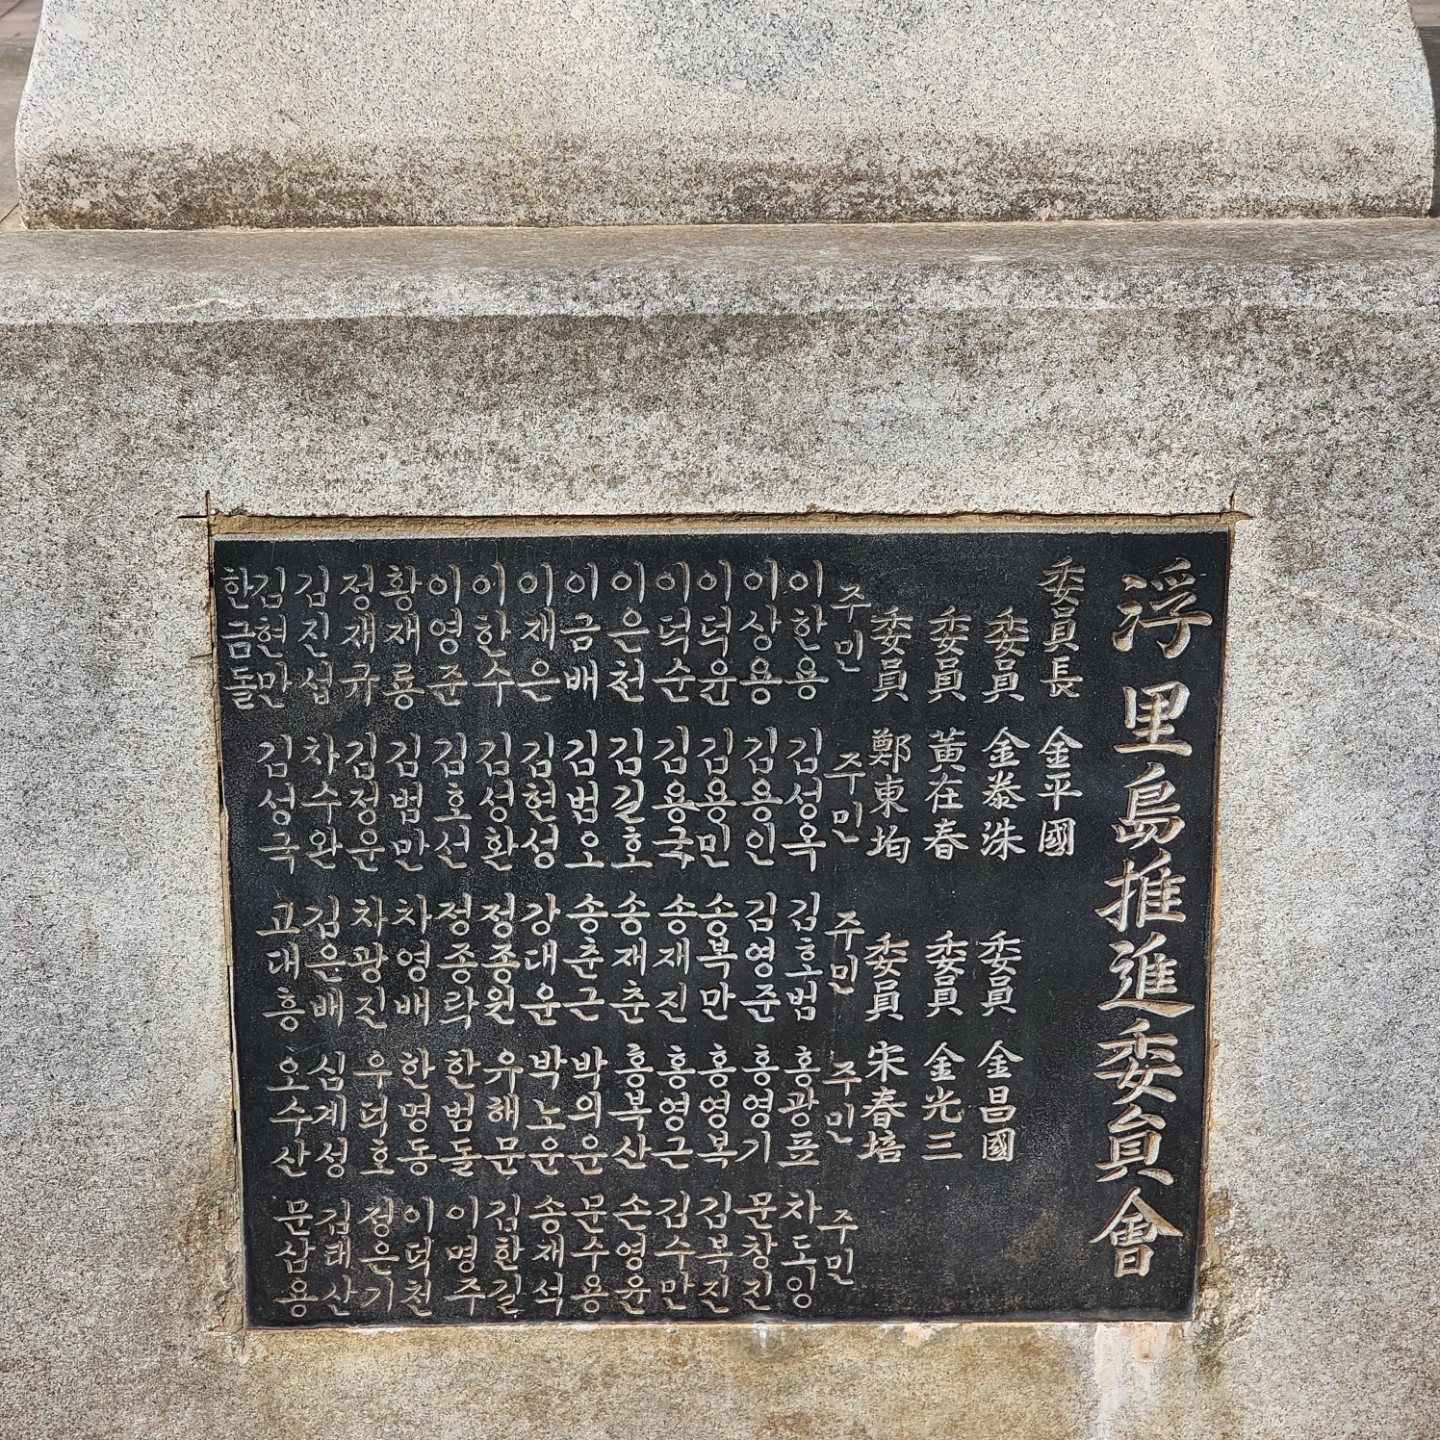 浮里島推進委員會
委員長 金平國
委員 金泰洙 委員 金昌國
委員 黃在春 委員 金光三
委員 鄭東均 委員 宋春培
주민 주민 주민 주민 주민
이한용 김성옥 김호범 홍광표 차도잉
이상용 김용인 김영준 홍영기 문창진
이덕윤 김용민 송복만 홍영복 김복진
이덕순 김용국 송재진 홍영근 김수만
이은천 김길호 송재춘 홍복산 손영윤
이금배 김범오 송춘근 박의윤 문수용
이재은 김현성 강대운 박노운 송재석
이한수 김성환 정종원 유해문 김한길
이영준 김호선 정종락 한범돌 이명주
황재룡 김범만 차영배 한명동 이덕천
정재규 김정운 차광진 우덕호 정은기
김진섭 차수완 김은배 심계성 김태산
김현만 김성국 고대흥 오수산 문삼용
한금돌